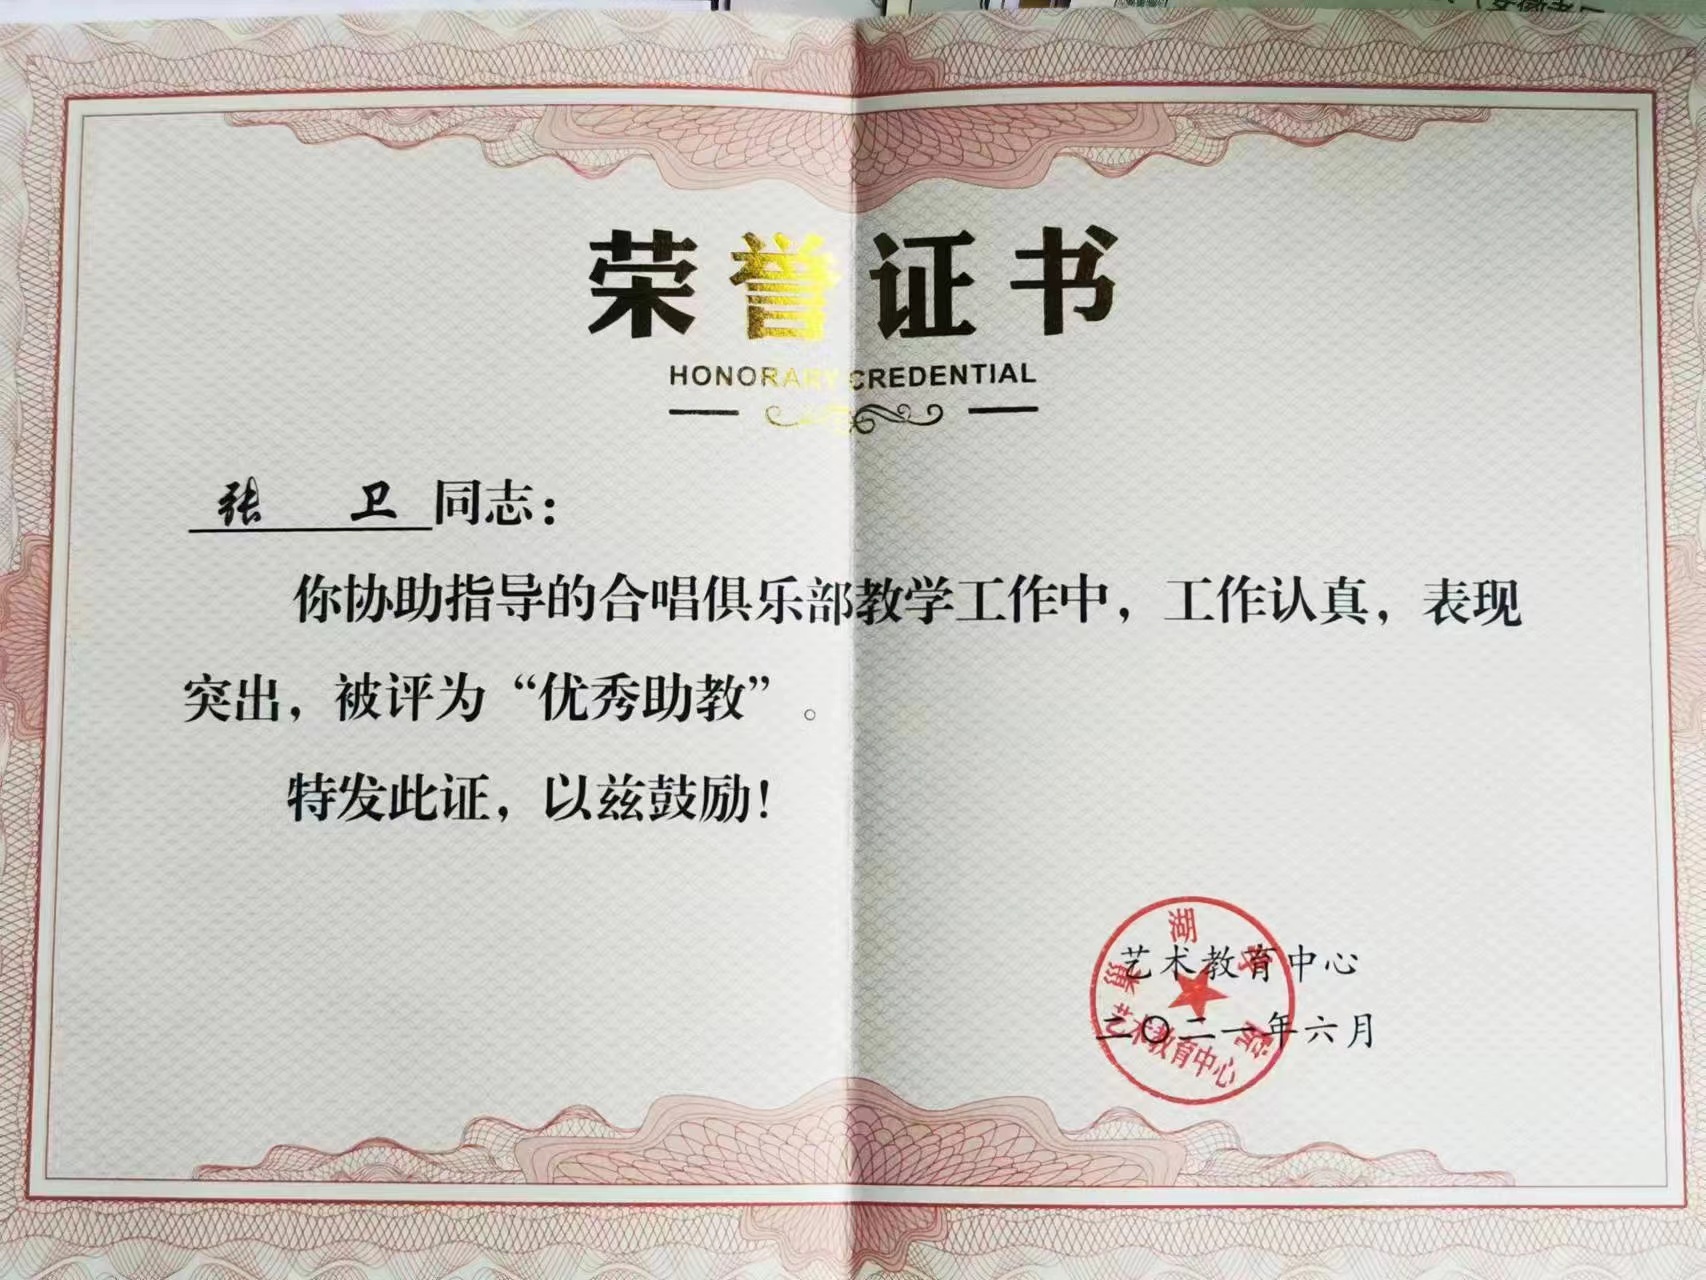 荣誉证书
HONORARY CREDENTIAL
张 卫同志：
你协助指导的合唱俱乐部教学工作中，工作认真，表现
突出，被评为“优秀助教”。
特发此证，以兹鼓励！
艺术教育中心
二〇二一年六月
巢湖学院
艺术教育中心